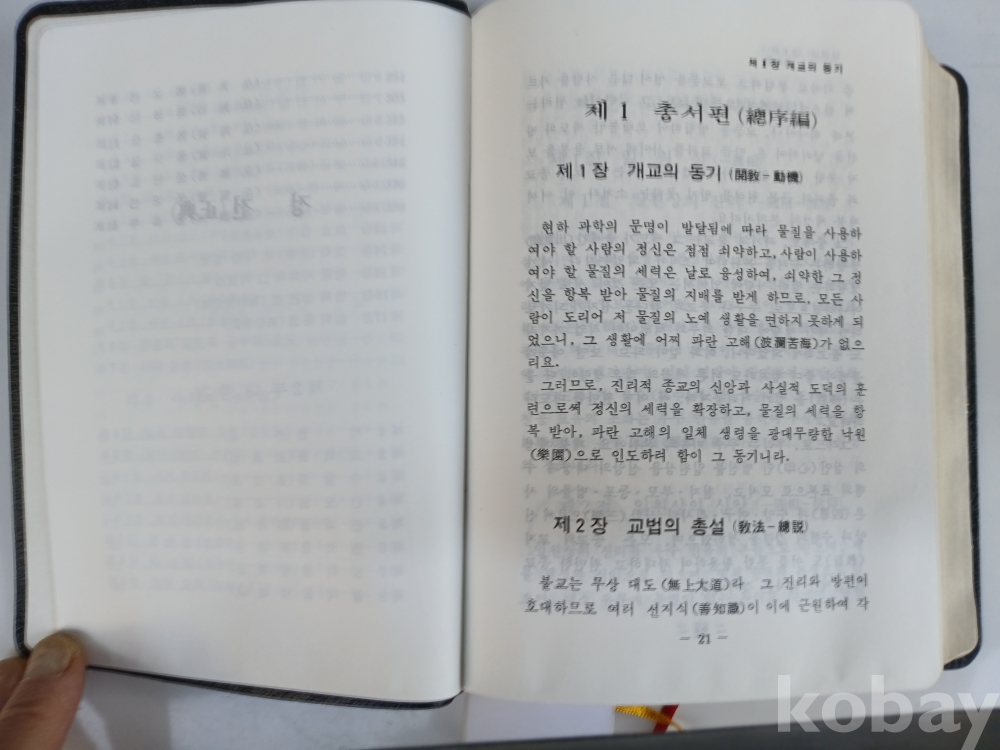 제 1 장 개교의 동기
제 1 총서편 (總序編)
제 1 장 개교의 동기 (開敎-動機)
현하 과학의 문명이 발달됨에 따라 물질을 사용하
여야 할 사람의 정신은 점점 쇠약하고, 사람이 사용하
여야 할 물질의 세력은 날로 융성하여, 쇠약한 그 정
신을 항복 받아 물질의 지배를 받게 하므로, 모든 사
람이 도리어 저 물질의 노예 생활을 면하지 못하게 되
었으니, 그 생활에 어찌 파란 고해 (波瀾苦海)가 없으
리요.
그러므로, 진리적 종교의 신앙과 사실적 도덕의 훈
련으로써 정신의 세력을 확장하고, 물질의 세력을 항
복 받아, 파란 고해의 일체 생령을 광대무량한 낙원
(樂園)으로 인도하려 함이 그 동기니라.
제 2 장 교법의 총설 (敎法-總說)
불교는 무상 대도 (無上大道)라 그 진리와 방편이
호대하므로 여러 선지식 (善知識)이 이에 근원하여 각
- 21 -
kobay